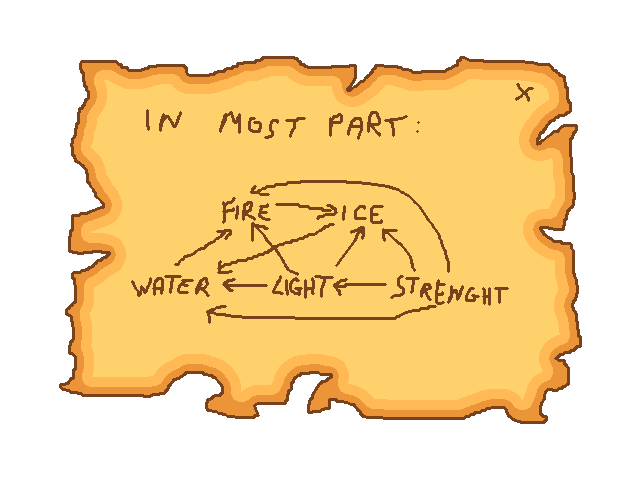 X
IN MOST PART:
FIRE ICE
WATER LIGHT STRENGHT